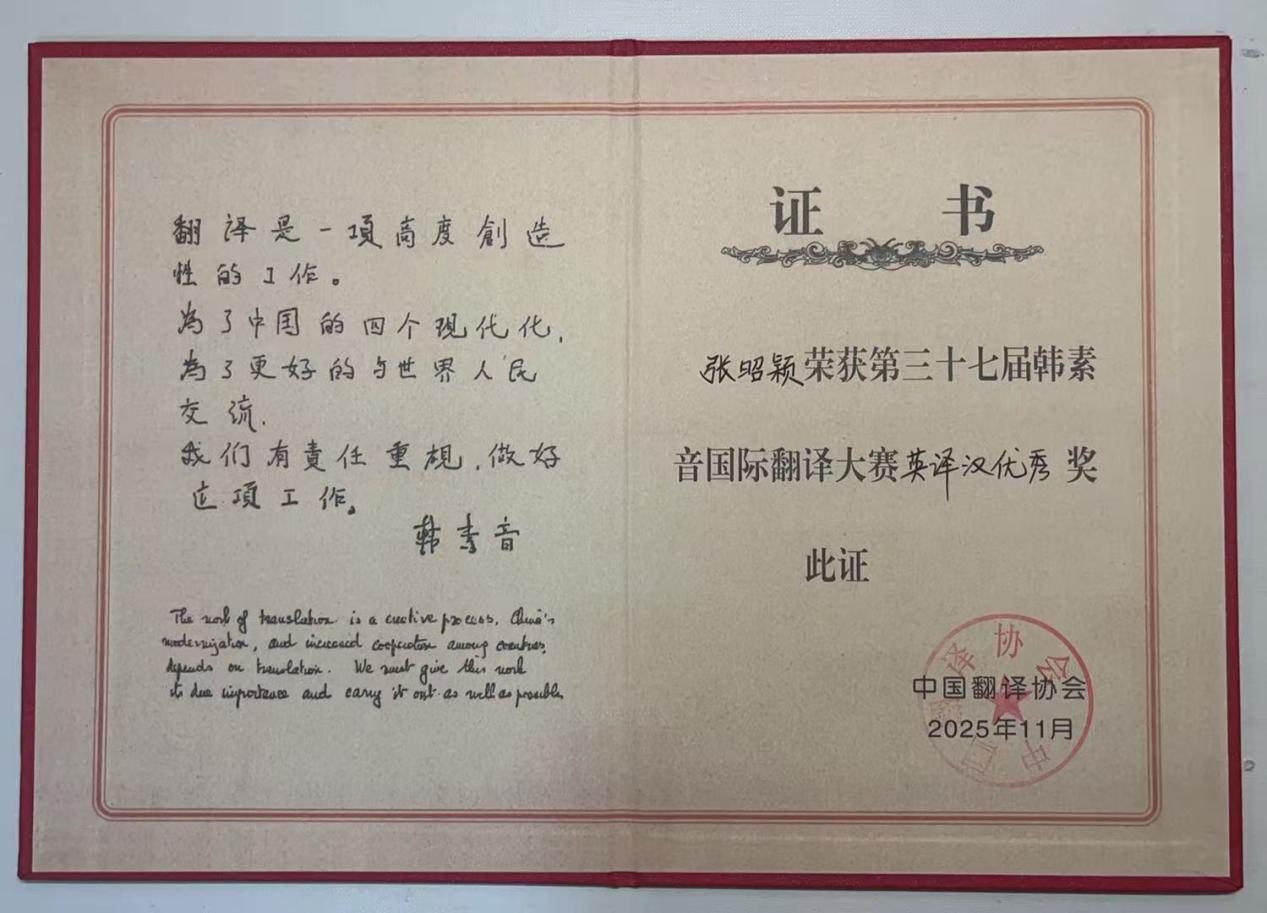 翻译是一項高度創造
性的工作。
為了中国的四个现代化,
為了更好的与世界人民
交流.
我们有責任重视,做好
这項工作。
韩素音
The work of translation is a creative process. China's
modernization, and increased cooperation among countries,
depends on translation. We must give this work
its due importance and carry it out as well as possible.
证 书
张昭颖荣获第三十七届韩素
音国际翻译大赛英译汉优秀 奖
此证
中国翻译协会
中国翻译协会
2025年11月